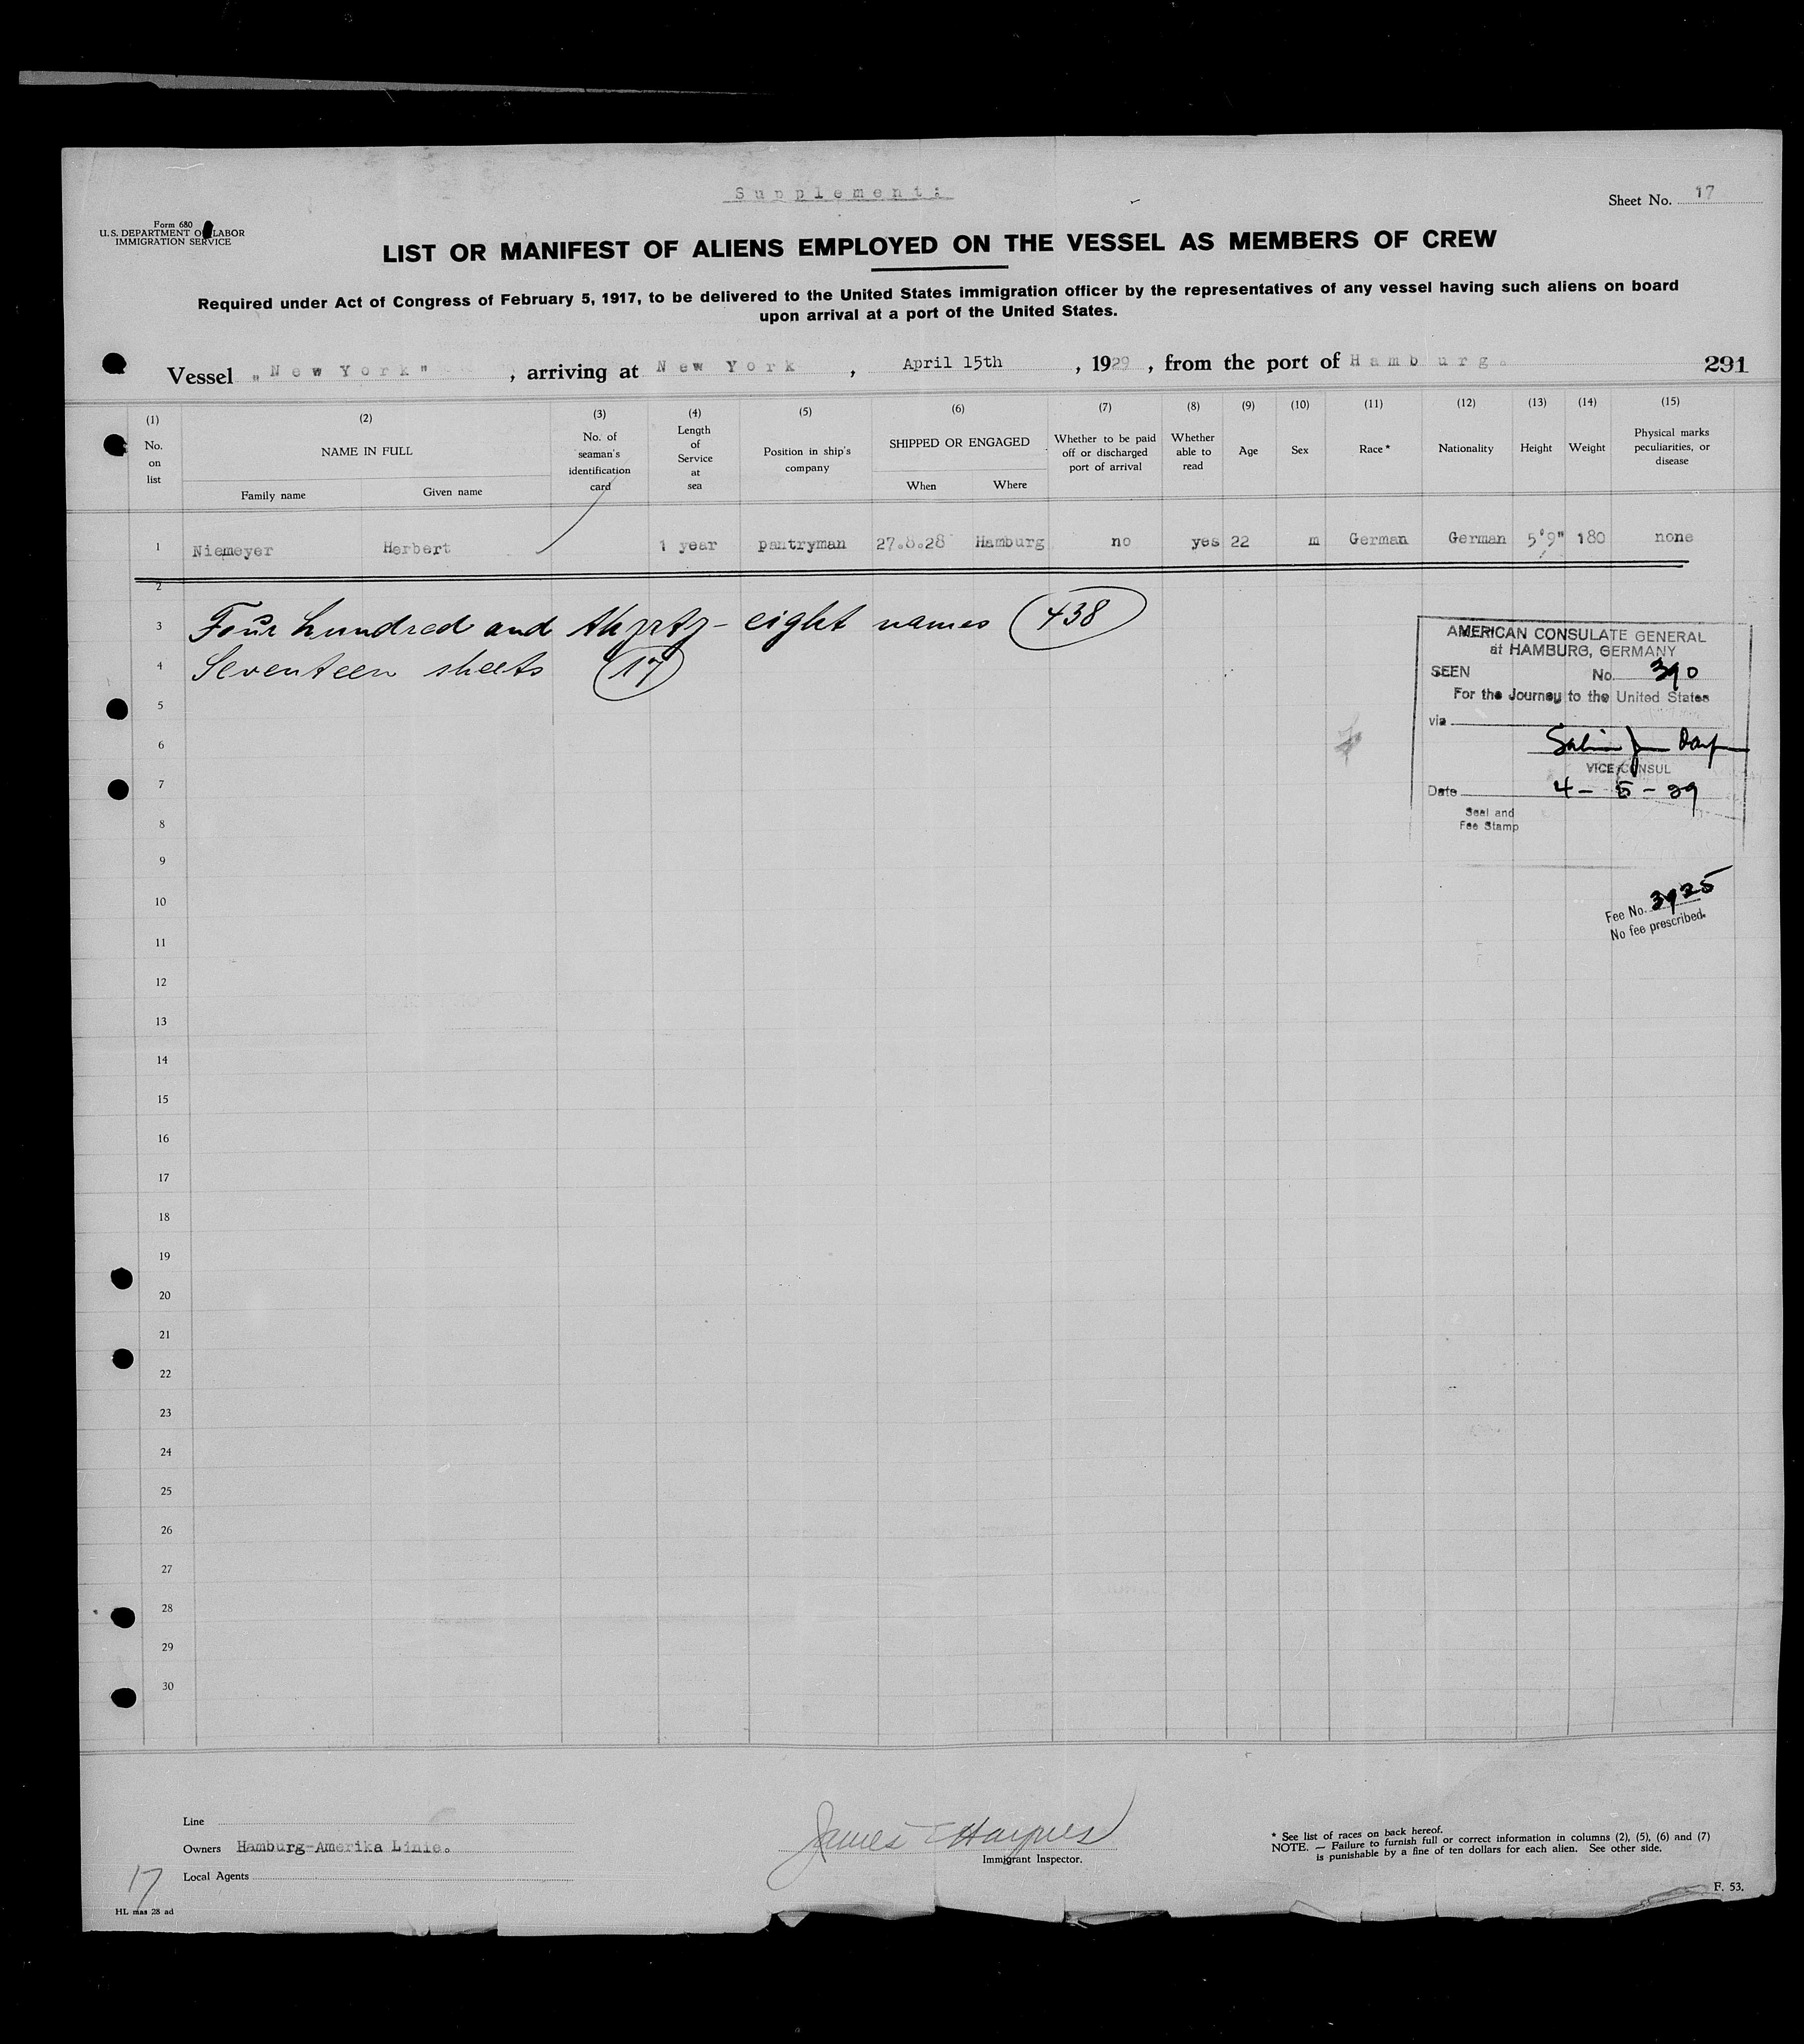 Supplement:
Sheet No. 17
Form 680
U.S. DEPARTMENT OF LABOR
IMMIGRATION SERVICE
LIST OR MANIFEST OF ALIENS EMPLOYED ON THE VESSEL AS MEMBERS OF CREW
Required under Act of Congress of February 5, 1917, to be delivered to the United States immigration officer by the representatives of any vessel having such aliens on board
upon arrival at a port of the United States.
Vessel „New York" , arriving at New York , April 15th , 1929 , from the port of Hamburg. 291
(1) (2) (3) (4) (5) (6) (7) (8) (9) (10) (11) (12) (13) (14) (15)
No. on list
NAME IN FULL
Family name Given name
No. of seaman's identification card
Length of Service at sea
Position in ship's company
SHIPPED OR ENGAGED
When Where
Whether to be paid off or discharged port of arrival
Whether able to read
Age
Sex
Race*
Nationality
Height
Weight
Physical marks peculiarities, or disease
1 Niemeyer Herbert 1 year pantryman 27.8.28 Hamburg no yes 22 m German German 5'9" 180 none
2
3 Four hundred and thirty-eight names 438
4 Seventeen sheets 17
AMERICAN CONSULATE GENERAL
at HAMBURG, GERMANY
SEEN No. 390
For the Journey to the United States
via
VICE CONSUL
Date 4-5-29
Seal and
Fee Stamp
Fee No. 3925
No fee prescribed.
5
6
7
8
9
10
11
12
13
14
15
16
17
18
19
20
21
22
23
24
25
26
27
28
29
30
Line
Owners Hamburg-Amerika Linie.
Local Agents
17
HL mas 28 ad
James Haynes
Immigrant Inspector.
* See list of races on back hereof.
NOTE. — Failure to furnish full or correct information in columns (2), (5), (6) and (7)
is punishable by a fine of ten dollars for each alien. See other side.
F. 53.